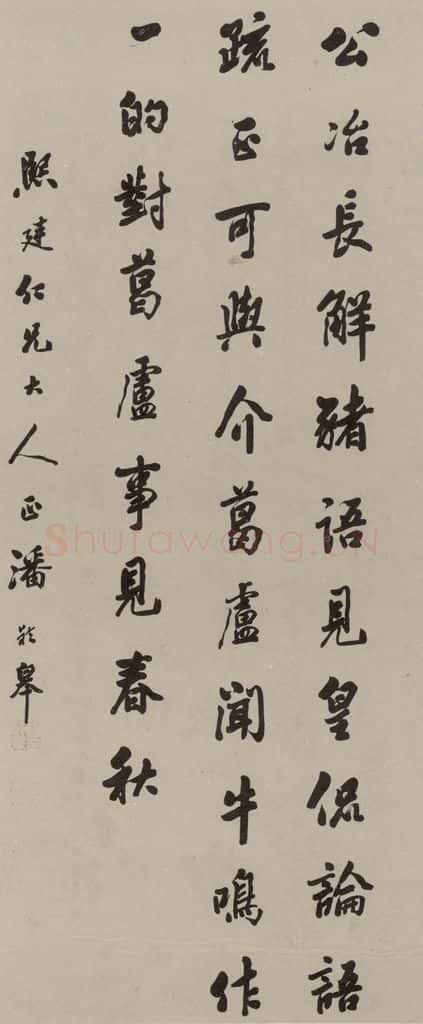 公冶長解豬語見皇侃論語
疏正可與介葛盧聞牛鳴作
一的對葛盧事見春秋
熙建仁兄大人正 潘齡皋
Shufawang.CN